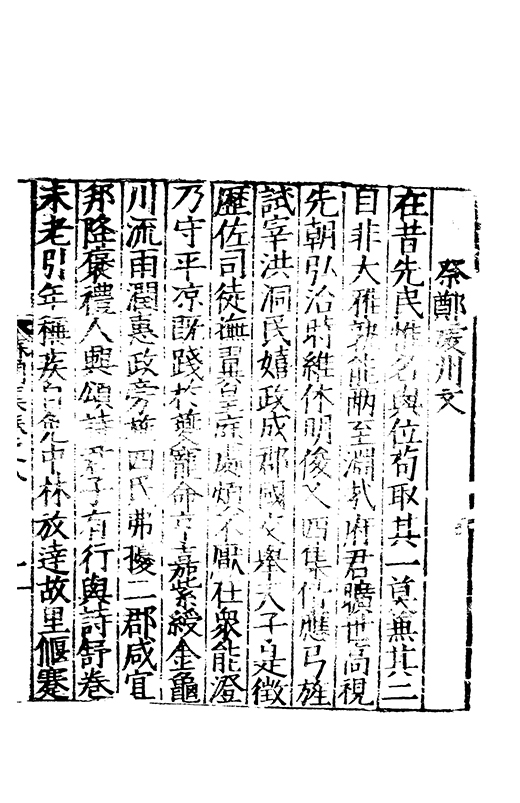 祭鄭陵川文
在昔先民惟名與位苟取其一莫無其二
自非大雅孰能酬至淵哉府君曠世高視
先朝弘治時維休明俊乂四集侍應弓旌
試宰洪洞民嬉政成郡國交舉天子是徵
歷佐司徒撫處煩不厭在眾能澄
乃守平凉既踐於夔寵命嘉紫綬金龜
川流雨潤惠政旁四民弗擾二郡咸宜
邦降褒禮人興頌詩君子有行與詩舒卷
未老引年稱疾自免中林放達故里偃蹇